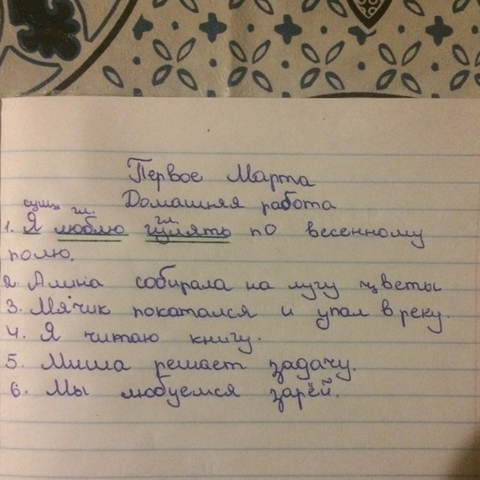 Первое Марта
Домашняя работа
сущ. гл. гл.
1. Я люблю гулять по весенному
полю.
2. Алина собирала на лугу цветы
3. Мячик покатался и упал в реку.
4. Я читаю книгу.
5. Миша решает задачу.
6. Мы любуемся зарёй.